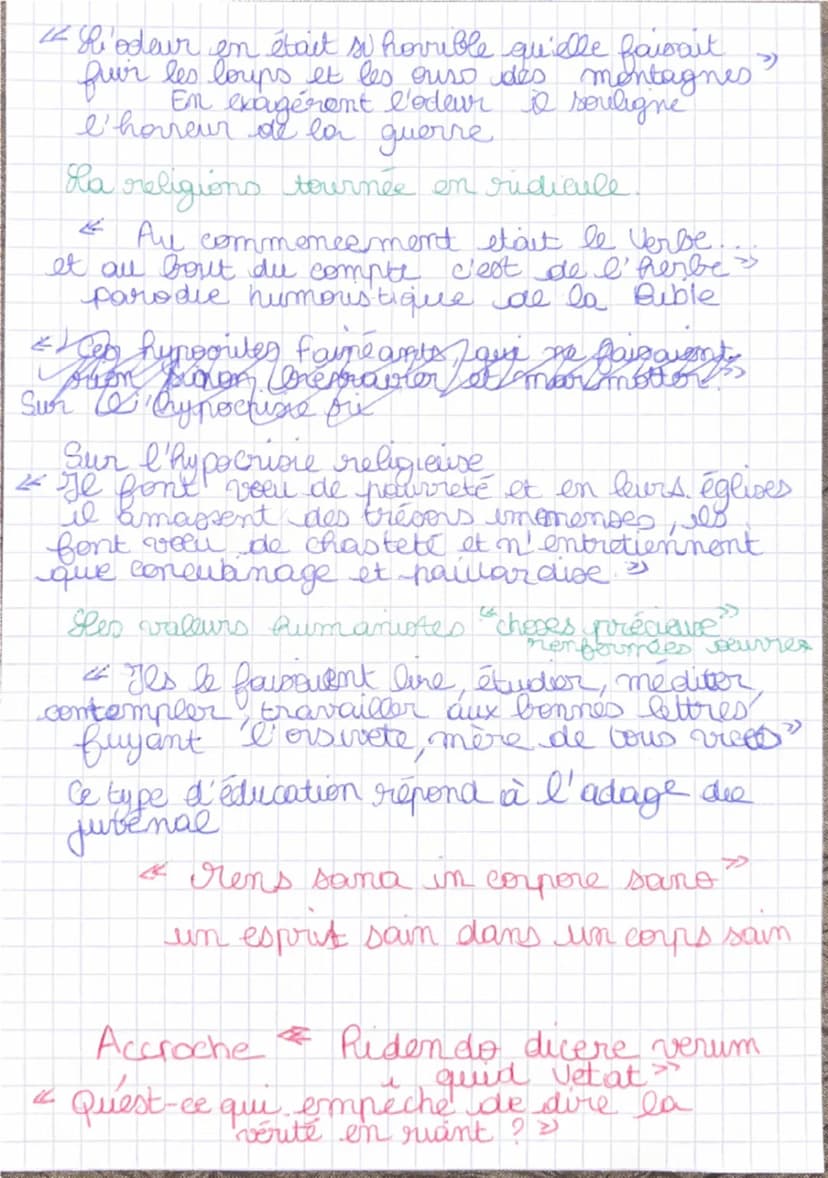 « L'odeur en était si horrible qu'elle faisait
fuir les loups et les ours des montagnes »
En exagérant l'odeur il souligne
l'horreur de la guerre
La religions tournée en ridicule.
« Au commencement était le Verbe...
et au bout du compte c'est de l'herbe »
parodie humoristique de la Bible
« Ces hypocrites fainéants, qui ne faisaient
rien sinon et marmotter. »
Sur l'hypocrisie
Sur l'hypocrisie religieuse
« Il font voeu de pauvreté et en leurs églises
il amassent des trésors immenses, ils
font voeu de chasteté et n'entretiennent
que concubinage et paillardise. »
Les valeurs humanistes "choses précieuse"
renfermées oeuvres
« Ils le faisaient lire, étudier, méditer,
contempler, travailler aux bonnes lettres
fuyant l'oisivete, mère de tous vices »
Ce type d'éducation répond à l'adage de
juvénal
« Mens sana in corpore sano »
un esprit sain dans un corps sain
Accroche « Ridendo dicere verum
quid vetat »
« Qu'est-ce qui empêche de dire la
vérité en riant ? »